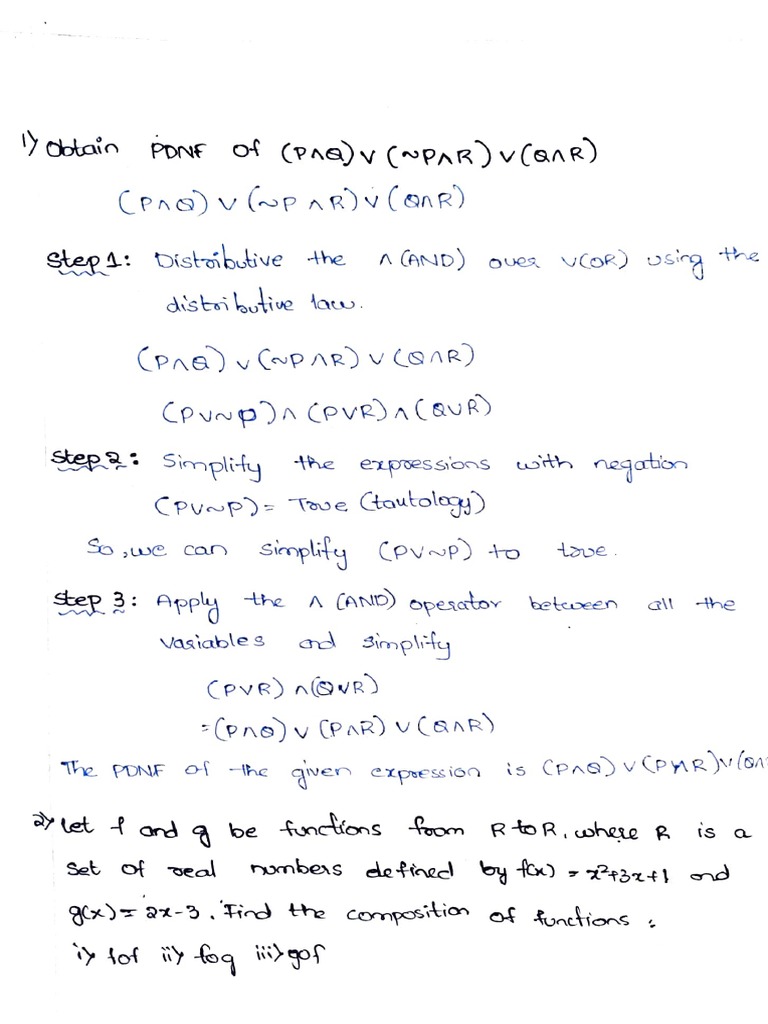 1) Obtain PDNF of (P∧Q)∨(~P∧R)∨(Q∧R)
(P∧Q)∨(~P∧R)∨(Q∧R)
Step 1: Distributive the ∧(AND) over ∨(OR) using the
distributive law.
(P∧Q)∨(~P∧R)∨(Q∧R)
(P∨~P)∧(P∨R)∧(Q∨R)
Step 2: Simplify the expressions with negation
(P∨~P)= True (tautology)
So, we can simplify (P∨~P) to true.
Step 3: Apply the ∧ (AND) operator between all the
variables and simplify
(P∨R)∧(Q∨R)
=(P∧Q)∨(P∧R)∨(Q∧R)
The PDNF of the given expression is (P∧Q)∨(P∧R)∨(Q∧
2) Let f and g be functions from R to R, where R is a
set of real numbers defined by f(x) = x²+3x+1 and
g(x)= 2x-3. Find the composition of functions :
i) fof ii) fog iii) gof